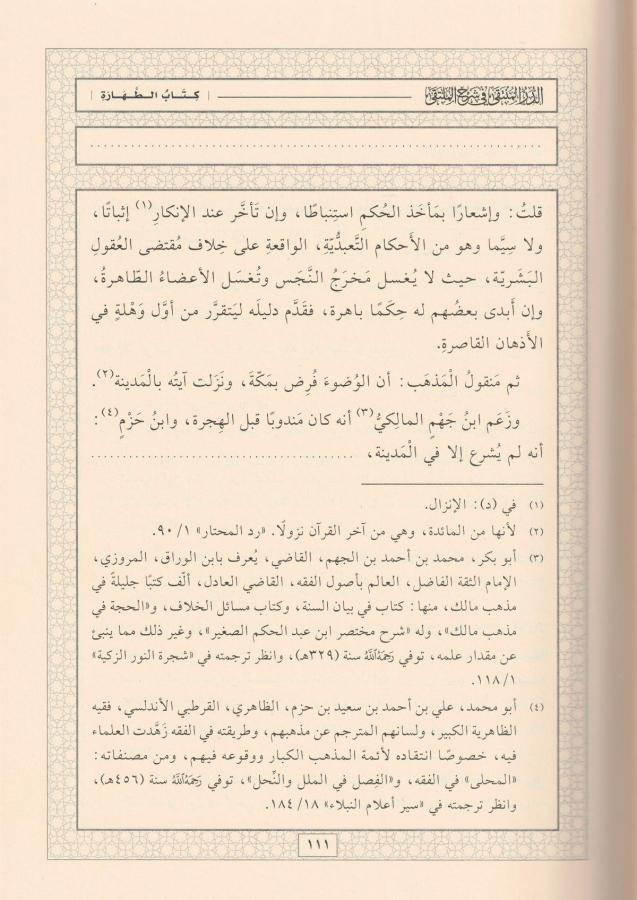 الدر المنتقى في شرح الملتقى
| كِتَابُ الطَّهَارَةِ |
قلتُ: وإشعارًا بمَأخَذ الحُكمِ استِنباطًا، وإن تَأخَّر عند الإنكارِ(١) إثباتًا،
ولا سِيَّما وهو من الأَحكام التَّعبدُّيّةِ، الواقعةِ على خِلاف مُقتضى العُقولِ
البَشَريّة، حيث لا يُغسل مَخرَجُ النَّجَس وتُغسَل الأعضاءُ الطّاهرةُ،
وإن أَبدى بعضُهم له حِكَمًا باهرة، فقَدَّم دليلَه ليَتقرَّر من أوَّل وَهْلةٍ في
الأذهان القاصرةِ.
ثم مَنقولُ الْمَذهَب: أن الوُضوءَ فُرِض بمَكّةَ، ونَزَلت آيتُه بالْمَدينة(٢).
وزَعَم ابنُ جَهْمٍ المالِكيُّ(٣) أنه كان مَندوبًا قبل الهِجرة، وابنُ حَزْمٍ(٤):
أنه لم يُشرع إلا في الْمَدينة، ........................................
(١) في (د): الإنزال.
(٢) لأنها من المائدة، وهي من آخر القرآن نزولًا. «رد المحتار» ١/ ٩٠.
(٣) أبو بكر، محمد بن أحمد بن الجهم، القاضي، يُعرف بابن الوراق، المروزي،
الإمام الثقة الفاضل، العالم بأصول الفقه، القاضي العادل، ألّف كتبًا جليلةً في
مذهب مالك، منها: كتاب في بيان السنة، وكتاب مسائل الخلاف، و«الحجة في
مذهب مالك»، وله «شرح مختصر ابن عبد الحكم الصغير»، وغير ذلك مما ينبئ
عن مقدار علمه، توفي رَحِمَهُ اللَّهُ سنة (٣٢٩هـ)، وانظر ترجمته في «شجرة النور الزكية»
١/ ١١٨.
(٤) أبو محمد، علي بن أحمد بن سعيد بن حزم، الظاهري، القرطبي الأندلسي، فقيه
الظاهرية الكبير، ولسانهم المترجم عن مذهبهم، وطريقته في الفقه زَهَّدت العلماء
فيه، خصوصًا انتقاده لأئمة المذهب الكبار ووقوعه فيهم، ومن مصنفاته:
«المحلى» في الفقه، و«الفِصل في الملل والنِّحل»، توفي رَحِمَهُ اللَّهُ سنة (٤٥٦هـ)،
وانظر ترجمته في «سير أعلام النبلاء» ١٨/ ١٨٤.
١١١